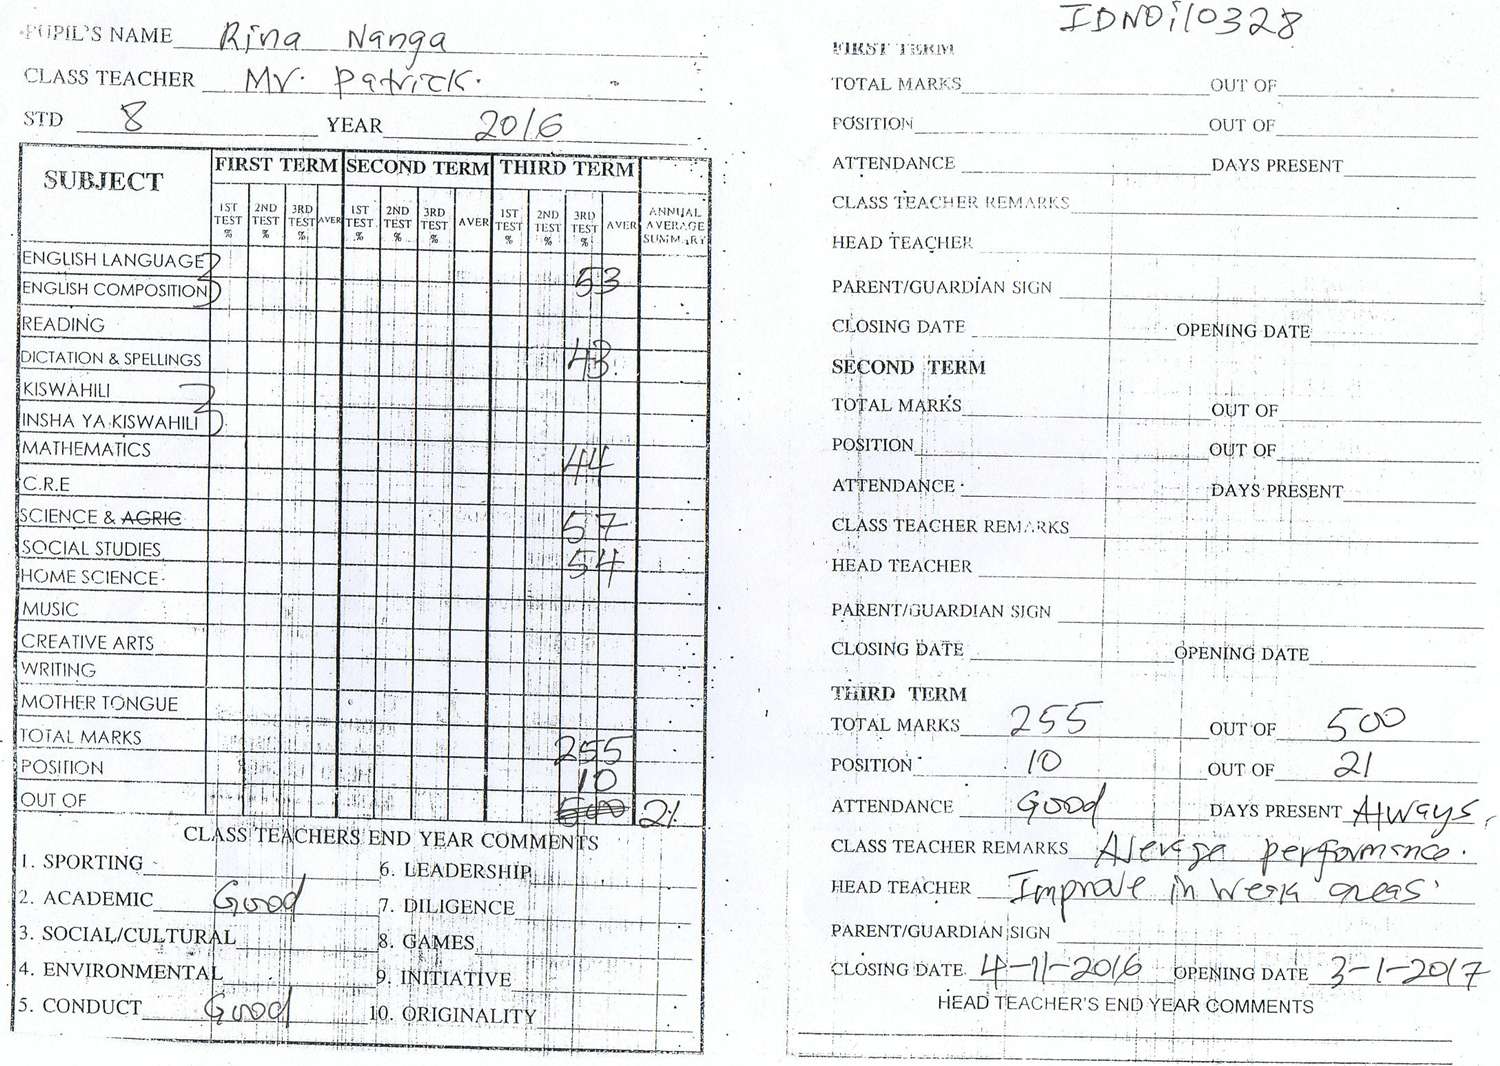 PUPIL'S NAME Rina Nanga
CLASS TEACHER Mr. Patrick.
STD 8 YEAR 2016
SUBJECT FIRST TERM SECOND TERM THIRD TERM
1ST TEST % 2ND TEST % 3RD TEST % AVER 1ST TEST % 2ND TEST % 3RD TEST % AVER 1ST TEST % 2ND TEST % 3RD TEST % AVER ANNUAL AVERAGE SUMMARY
ENGLISH LANGUAGE
ENGLISH COMPOSITION 53
READING
DICTATION & SPELLINGS 43
KISWAHILI
INSHA YA KISWAHILI
MATHEMATICS 44
C.R.E
SCIENCE & AGRIC 57
SOCIAL STUDIES 54
HOME SCIENCE
MUSIC
CREATIVE ARTS
WRITING
MOTHER TONGUE
TOTAL MARKS 255
POSITION 10
OUT OF 500 21
CLASS TEACHERS END YEAR COMMENTS
1. SPORTING 6. LEADERSHIP
2. ACADEMIC Good 7. DILIGENCE
3. SOCIAL/CULTURAL 8. GAMES
4. ENVIRONMENTAL 9. INITIATIVE
5. CONDUCT Good 10. ORIGINALITY
IDNO:110328
FIRST TERM
TOTAL MARKS OUT OF
POSITION OUT OF
ATTENDANCE DAYS PRESENT
CLASS TEACHER REMARKS
HEAD TEACHER
PARENT/GUARDIAN SIGN
CLOSING DATE OPENING DATE
SECOND TERM
TOTAL MARKS OUT OF
POSITION OUT OF
ATTENDANCE DAYS PRESENT
CLASS TEACHER REMARKS
HEAD TEACHER
PARENT/GUARDIAN SIGN
CLOSING DATE OPENING DATE
THIRD TERM
TOTAL MARKS 255 OUT OF 500
POSITION 10 OUT OF 21
ATTENDANCE Good DAYS PRESENT Always.
CLASS TEACHER REMARKS Average performance.
HEAD TEACHER Improve in weak areas
PARENT/GUARDIAN SIGN
CLOSING DATE 4-11-2016 OPENING DATE 3-1-2017
HEAD TEACHER'S END YEAR COMMENTS